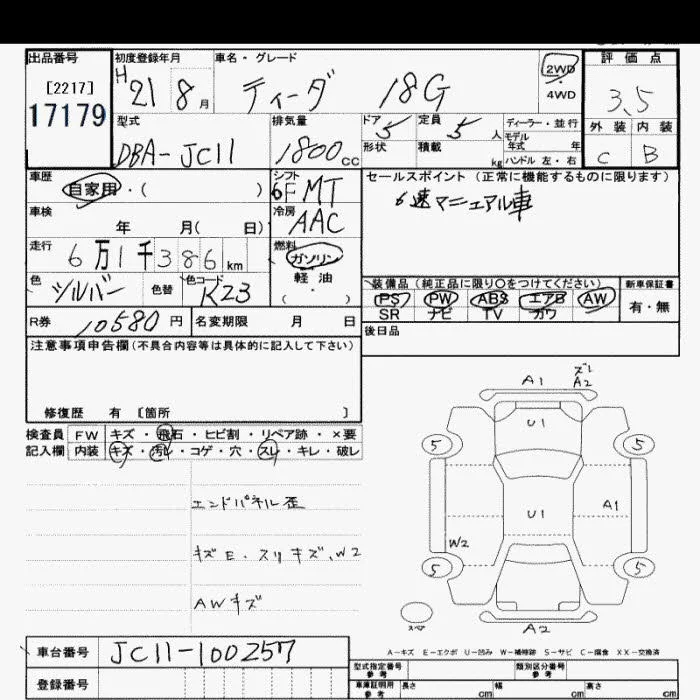 出品番号 初度登録年月 車名・グレード 2WD 評価点
[2217] H 21 8月 ティーダ 18G ・ 4WD 3.5
17179 型式 排気量 ドア 5 定員 5人 ディーラー・並行 外装 内装
モデル年式 年
DBA-JC11 1800cc 形状 積載 kg ハンドル 左・右 C B
車歴 自家用・( ) シフト 6F MT セールスポイント (正常に機能するものに限ります)
車検 年 月( 日) 冷房 AAC 6速マニュアル車
走行 6万1千386km 燃料 ガソリン
軽油
( )
色 シルバー 色替 色コード K23 装備品 (純正品に限り○をつけてください) 新車保証書
PS PW ABS エアB AW 有・無
SR ナビ TV カワ
R券 10580円 名変期限 月 日 後日品
注意事項申告欄(不具合内容等は具体的に記入して下さい)
修復歴 有 [箇所 ]
検査員 FW キズ・飛石・ヒビ割・リペア跡・×要
記入欄 内装 キズ・汚レ・コゲ・穴・スレ・キレ・破レ
エンドパネル歪
キズE・スリキズ、W2
AWキズ
A1 ズレ A2
U1
5 5
U1 A1
W2
5 5
スペア
A2
A-キズ E-エクボ U-凹み W-補修跡 S-サビ C-腐食 XX-交換済
車台番号 JC11-100257
登録番号
型式指定番号 参考 類別区分番号 参考
車庫証明用 参考 長さ cm 幅 cm 高さ cm